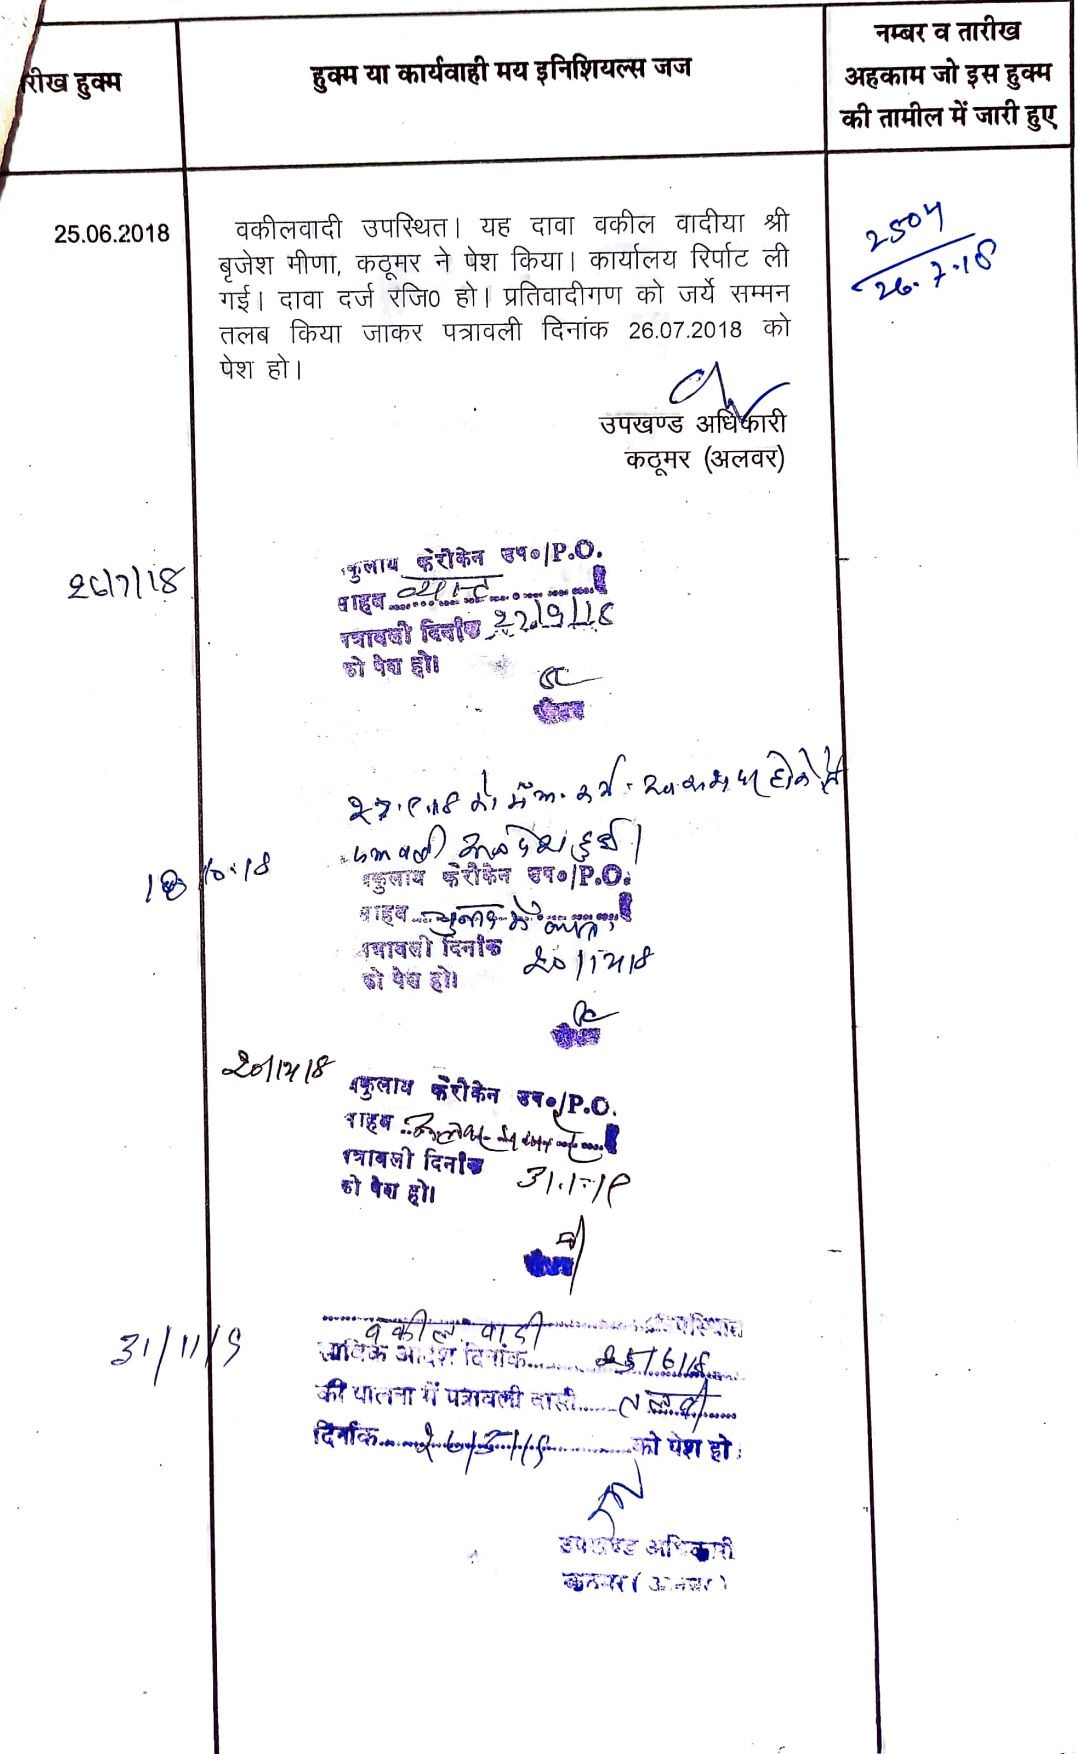 रीख हुक्म
हुक्म या कार्यवाही मय इनिशियल्स जज
नम्बर व तारीख
अहकाम जो इस हुक्म
की तामील में जारी हुए
25.06.2018
वकीलवादी उपस्थित। यह दावा वकील वादीया श्री
बृजेश मीणा, कठूमर ने पेश किया। कार्यालय रिर्पाट ली
गई। दावा दर्ज रजि0 हो। प्रतिवादीगण को जर्ये सम्मन
तलब किया जाकर पत्रावली दिनांक 26.07.2018 को
पेश हो।
2504
26.7.18
उपखण्ड अधिकारी
कठूमर (अलवर)
26/7/18
केरीकेन उप०/P.O.
साहब
पत्रावली दिनांक 22/9/18
को पेश हो।
पेश हुई।
18/10/18
केरीकेन उप०/P.O.
साहब चुनाव में व्यस्त
पत्रावली दिनांक
20/12/18
को पेश हो।
20/12/18
केरीकेन उप०/P.O.
साहब
पत्रावली दिनांक
31.1.19
को पेश हो।
31/1/19
वकील वादी उपस्थित
साबिक आदेश दिनांक 25/6/18
की पालना में पत्रावली वास्ते तलबी
दिनांक को पेश हो
उपखण्ड अधिकारी
कठूमर (अलवर)